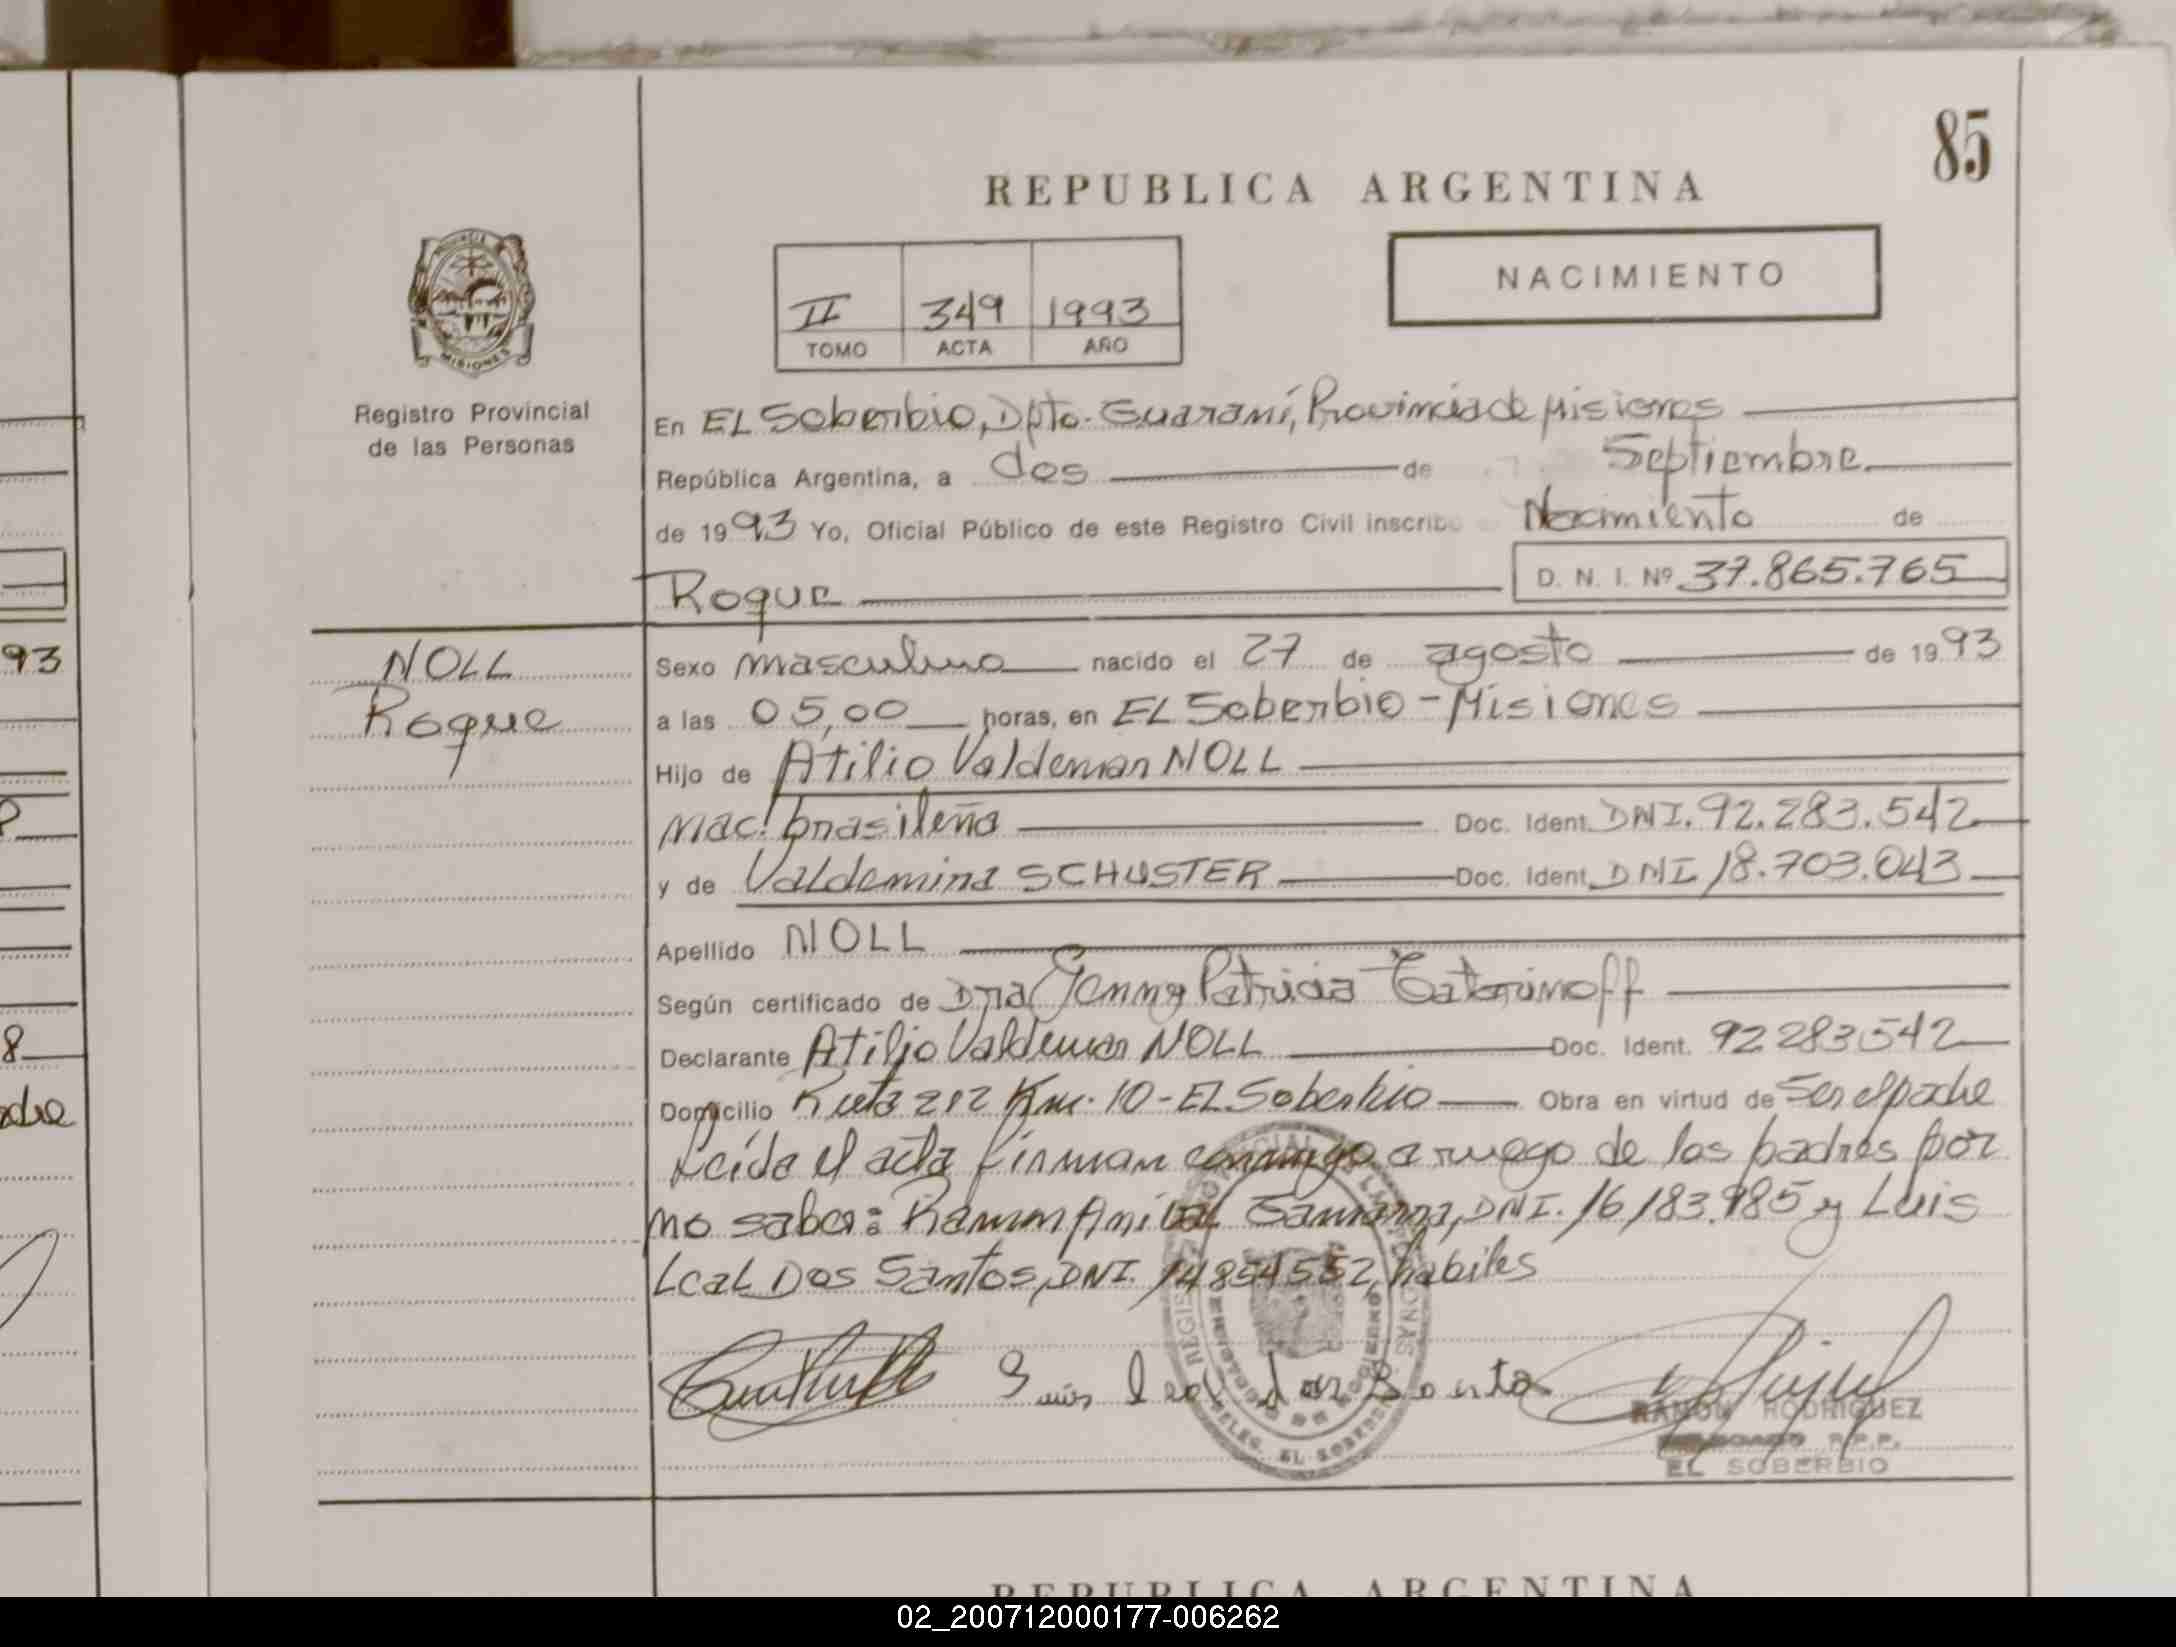 85
REPUBLICA ARGENTINA
NACIMIENTO
II 349 1993
TOMO ACTA AÑO
MISIONES
Registro Provincial
de las Personas
En EL Soberbio, Dpto. Guaraní, Provincia de Misiones
República Argentina, a dos de Septiembre
de 1993 Yo, Oficial Público de este Registro Civil inscribo Nacimiento de
Roque D. N. I. Nº 37.865.765
NOLL
Roque
Sexo masculino nacido el 27 de agosto de 1993
a las 05,00 horas, en EL Soberbio - Misiones
Hijo de Atilio Valdemar NOLL
Nac. brasileña Doc. Ident. DNI. 92.283.542
y de Valdemina SCHUSTER Doc. Ident. DNI 18.703.043
Apellido NOLL
Según certificado de Dra Jenny Patricia
Declarante Atilio Valdemar NOLL Doc. Ident. 92283542
Domicilio Ruta 212 Km. 10 - EL Soberbio Obra en virtud de Ser el padre
Leída el acta firman conmigo a ruego de los padres por
no saber: Ramon Anibal Gamarra, DNI. 16183.985 y Luis
Leal Dos Santos, DNI. 14854552, habiles
Luis Leal dos Santos
RAMON RODRIGUEZ
R.P.P.
EL SOBERBIO
REPUBLICA ARGENTINA
93
8
padre
02_200712000177-006262